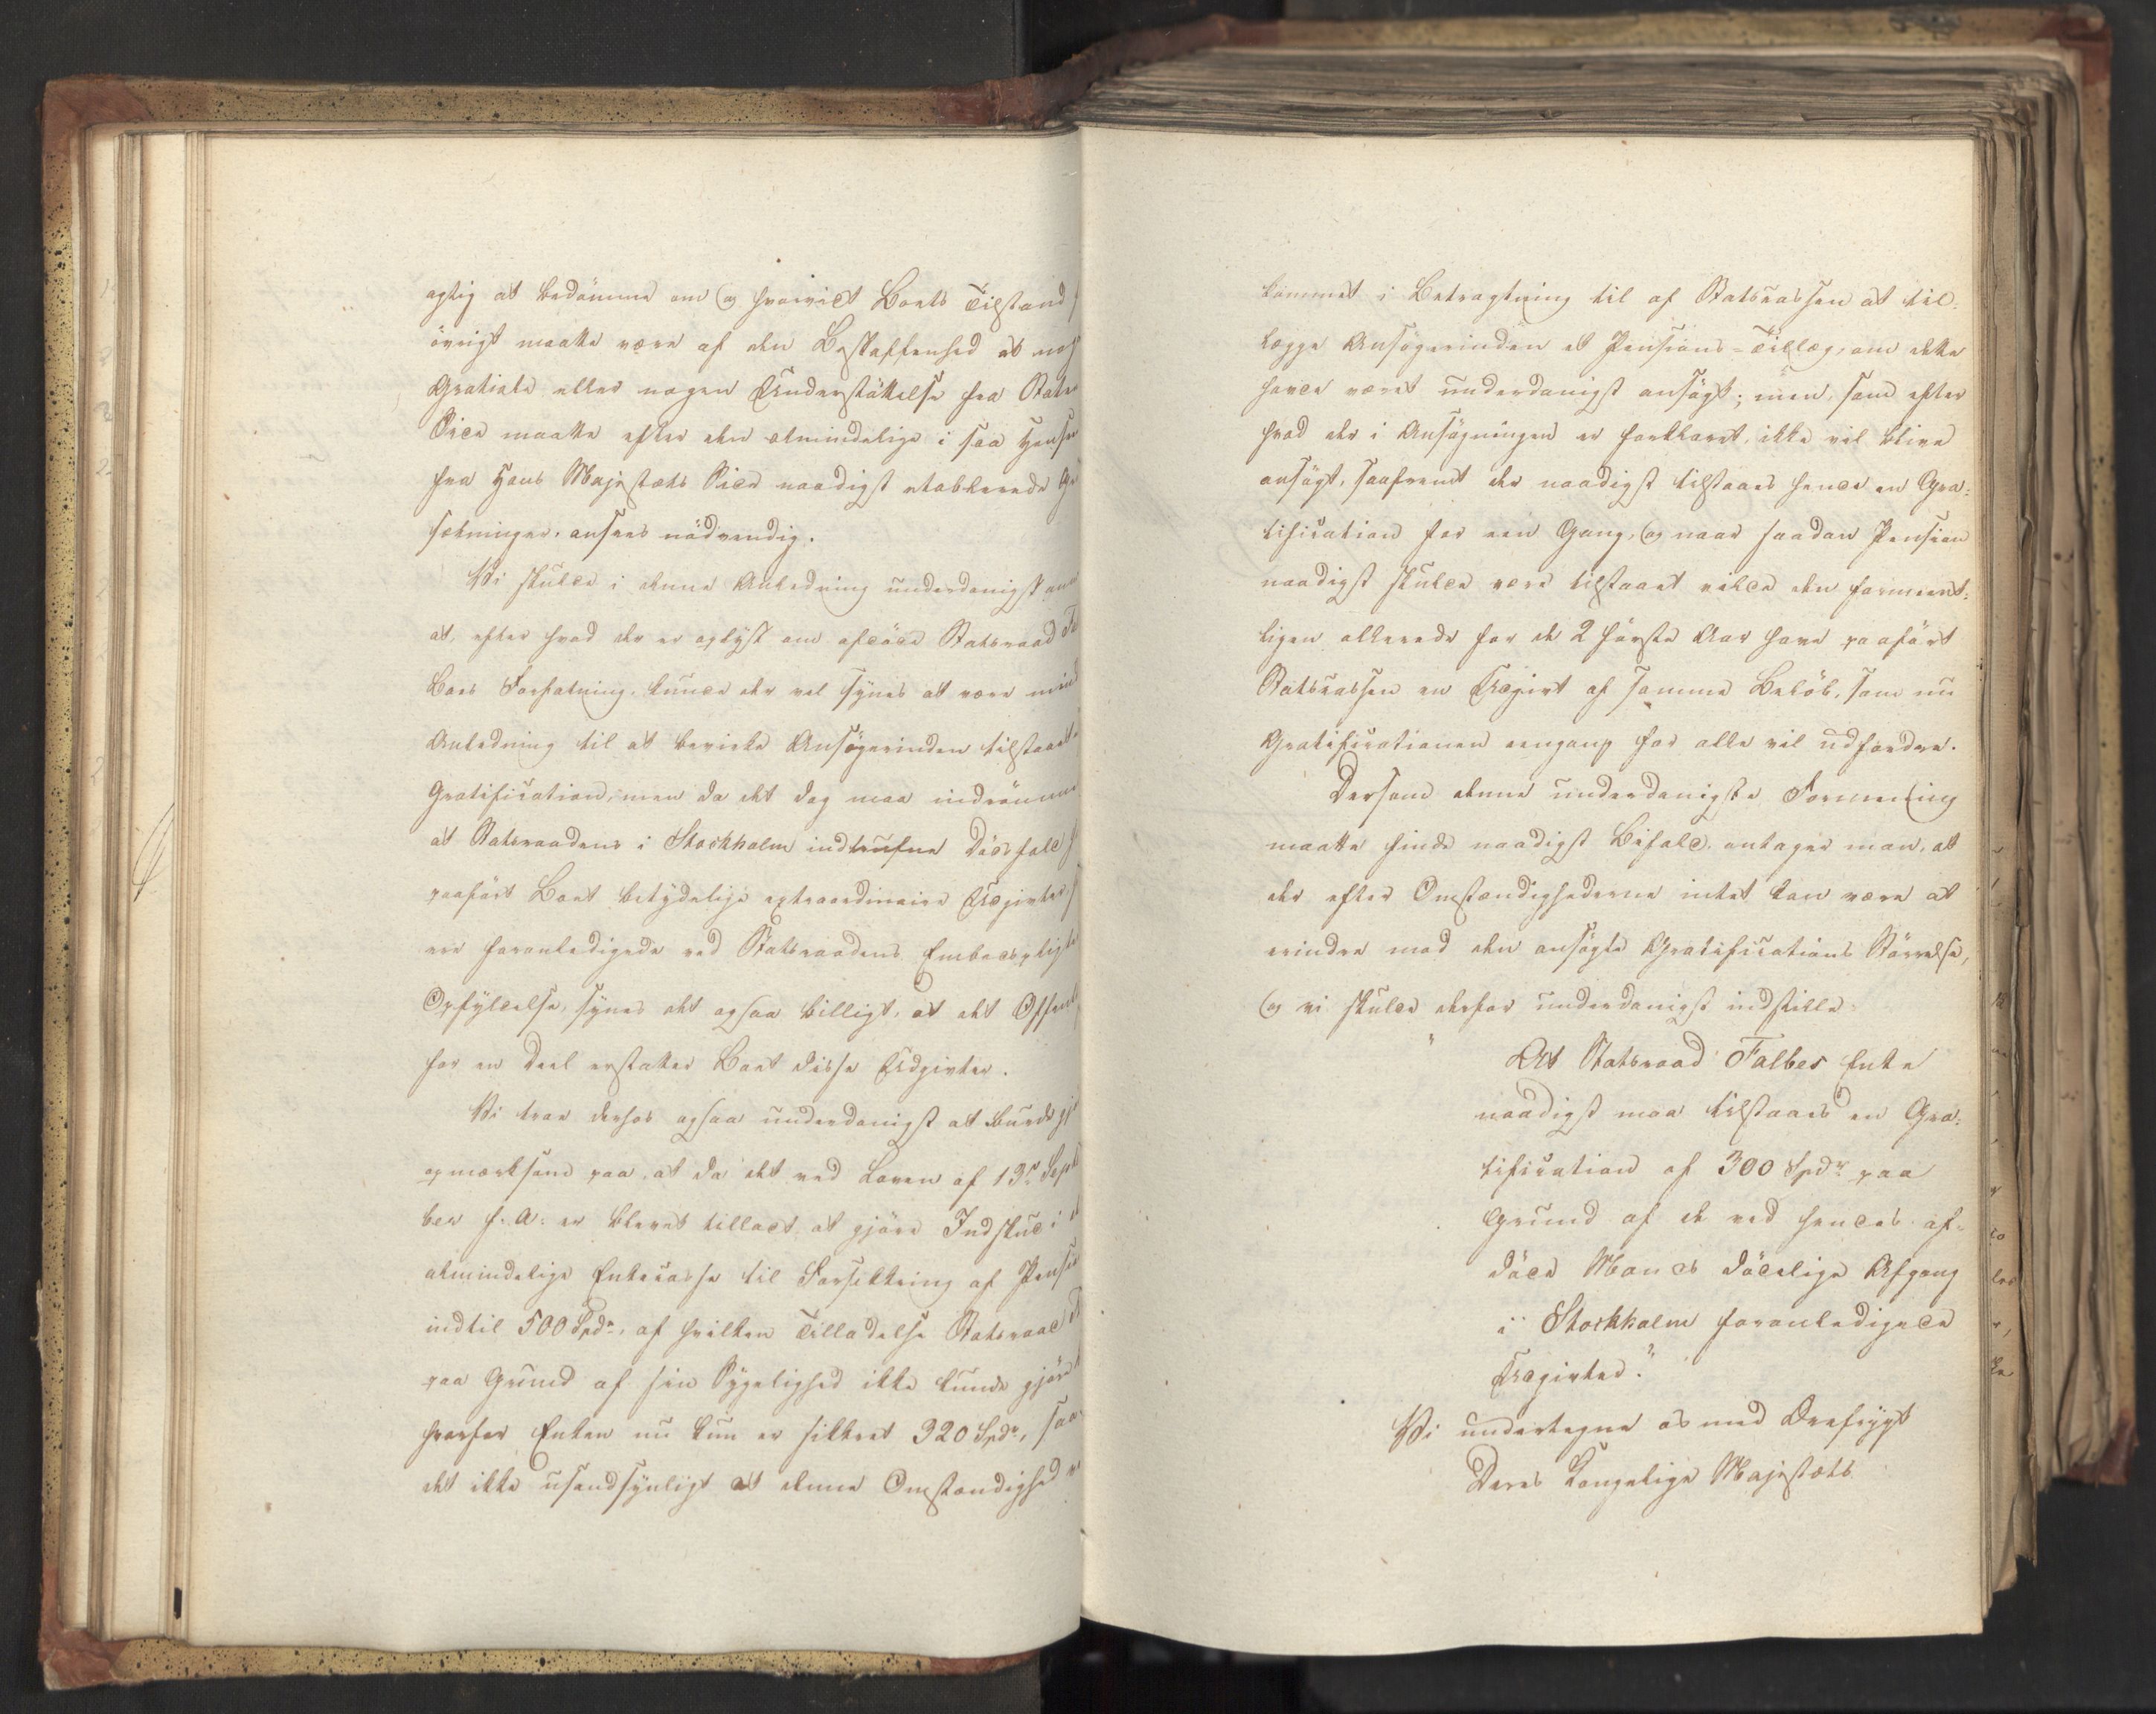 agtig at bedömme om og hvorvidt Boets Tilstand
övrigt maatte være af den Beskaffenhed at no
Gratiale eller nogen Understöttelse fra Stat
Side maatte efter den almindelige i saa Hense
fra Hans Majestæts Side naadigst etablerede
sætninger, ansees nödvendig.
Vi skulde i denne Anledning underdanigst
at, efter hvad der er oplyst om afdöde Statsraad
Boes Forfatning, kunde der vel synes at være mind
Anledning til at bevirke Ansögerinden tilstaaet
Gratification, men da det dog maa indrömme
at Statsraadens i Stockholm indtrufne Dödsfald
paafört Boet betydelige extraordinaire Udgivter
ere foranledigede ved Statsraadens Embedspligts
Opfyldelse, synes det ogsaa billigt, at det Offent
for en Deel erstatter Boet disse Udgivter.
Vi troe derhos ogsaa underdanigst at burde gj
opmærksom paa, at da det ved Loven af 13de Sept
ber f. A: er blevet tilladt at gjöre Indskud i
almindelige Enkecasse til Forsikkring af Pensi
indtil 500 Spdr, af hvilken Tilladelse Statsraad
paa Grund af sin Sygelighed ikke kunde gjöre
hvorfor Enken nu kun er sikkret 320 Spdr, saa
det ikke usandsynligt at denne Omstændighed
kommet i Betragtning til af Statskassen at til-
lægge Ansögerinden et Pensions-Tillæg, om dette
havde været underdanigst ansögt; men, som efter
hvad der i Ansögningen er forklaret, ikke vil blive
ansögt, saafremt der naadigst tilstaaes hende en Gra-
tification for een Gang, og naar saadan Pension
naadigst skulde være tilstaaet vilde den formeent-
ligen allerede for de 2 förste Aar have paafört
Statskassen en Udgivt af samme Belöb, som nu
Gratificationen eengang for alle vil udfordre.
Dersom denne underdanigste Formening
maatte finde naadigst Bifald, antager man, at
der efter Omstændighederne intet kan være at
erindre mod den ansögte Gratifications Störrelse,
og vi skulde derfor underdanigst indstille:
"At Statsraad Falbes Enke
naadigst maa tilstaaes en Gra-
tification af 300 Spdr paa
Grund af de ved hendes af-
döde Mands dödelige Afgang
i Stockholm foranledigede
Udgivter."
Vi undertegne os med Ærefrygt
Deres Kongelige Majestæts